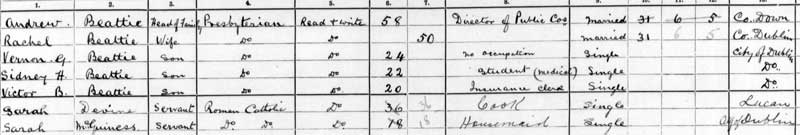 1. 2. 3. 4. 5. 6. 7. 8. 9. 10. 11. 12. 13.
Andrew. Beattie Head of Family Presbyterian Read & write 58 Director of Public Cos Married 31 6 5 Co. Down
Rachel Beattie Wife Do Do 50 married 31 6 5 Co. Dublin
Vernon. G. Beattie Son Do Do 24 no occupation Single City of Dublin
Sidney H. Beattie Son Do Do 22 Student (medical) Single Do.
Victor B. Beattie Son Do Do 20 Insurance clerk Single Do.
Sarah Devine Servant Roman Catholic Do 36 36 Cook Single Lucan
Sarah McGuiness. Servant Do Do Do 18 18 Housemaid Single City of Dublin